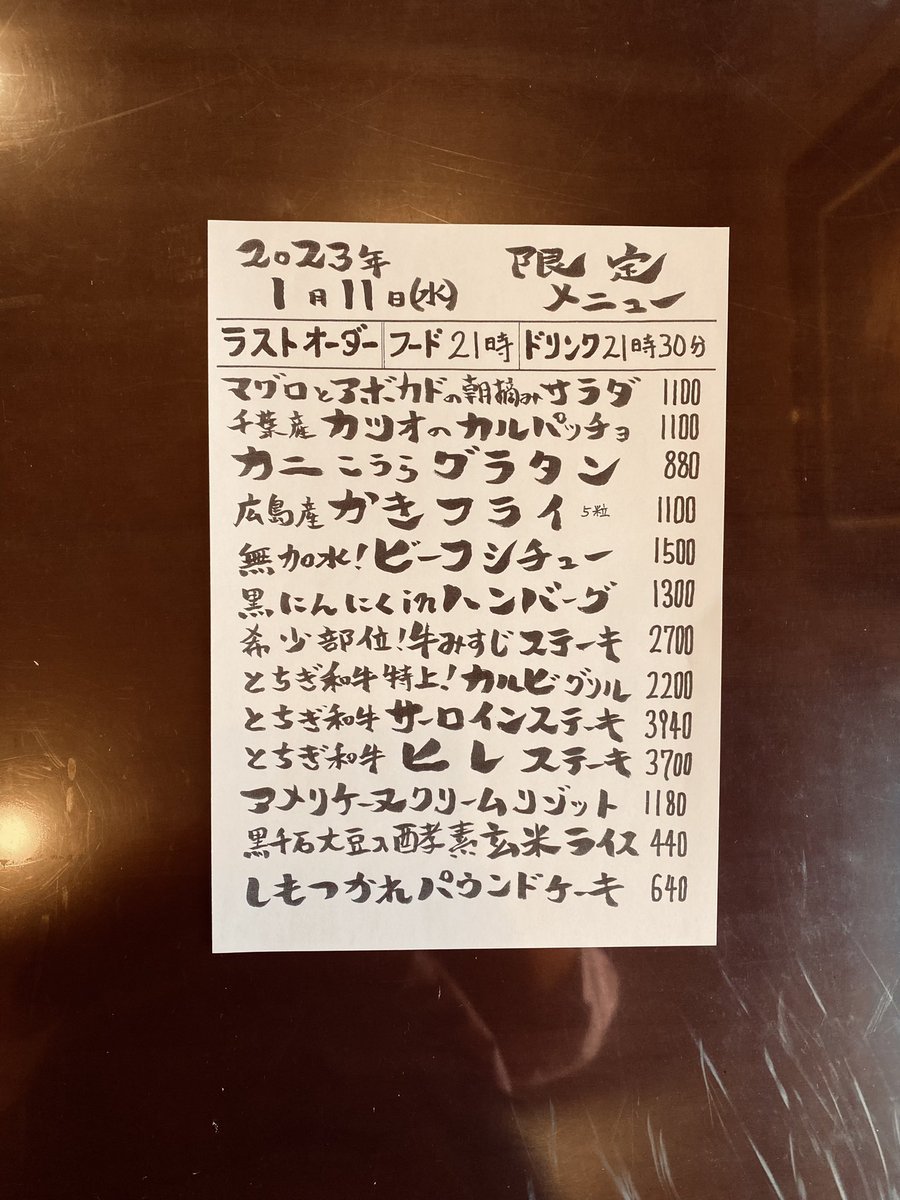 2023年 限定
1月11日(水) メニュー
ラストオーダー フード21時 ドリンク21時30分
マグロとアボカドの朝摘みサラダ 1100
千葉産カツオのカルパッチョ 1100
カニこうらグラタン 880
広島産かきフライ 5粒 1100
無加水!ビーフシチュー 1500
黒にんにくinハンバーグ 1300
希少部位!牛みすじステーキ 2700
とちぎ和牛特上!カルビグリル 2200
とちぎ和牛サーロインステーキ 3940
とちぎ和牛ヒレステーキ 3700
アメリケーヌクリームリゾット 1180
黒千石大豆入酵素玄米ライス 440
しもつかれパウンドケーキ 640